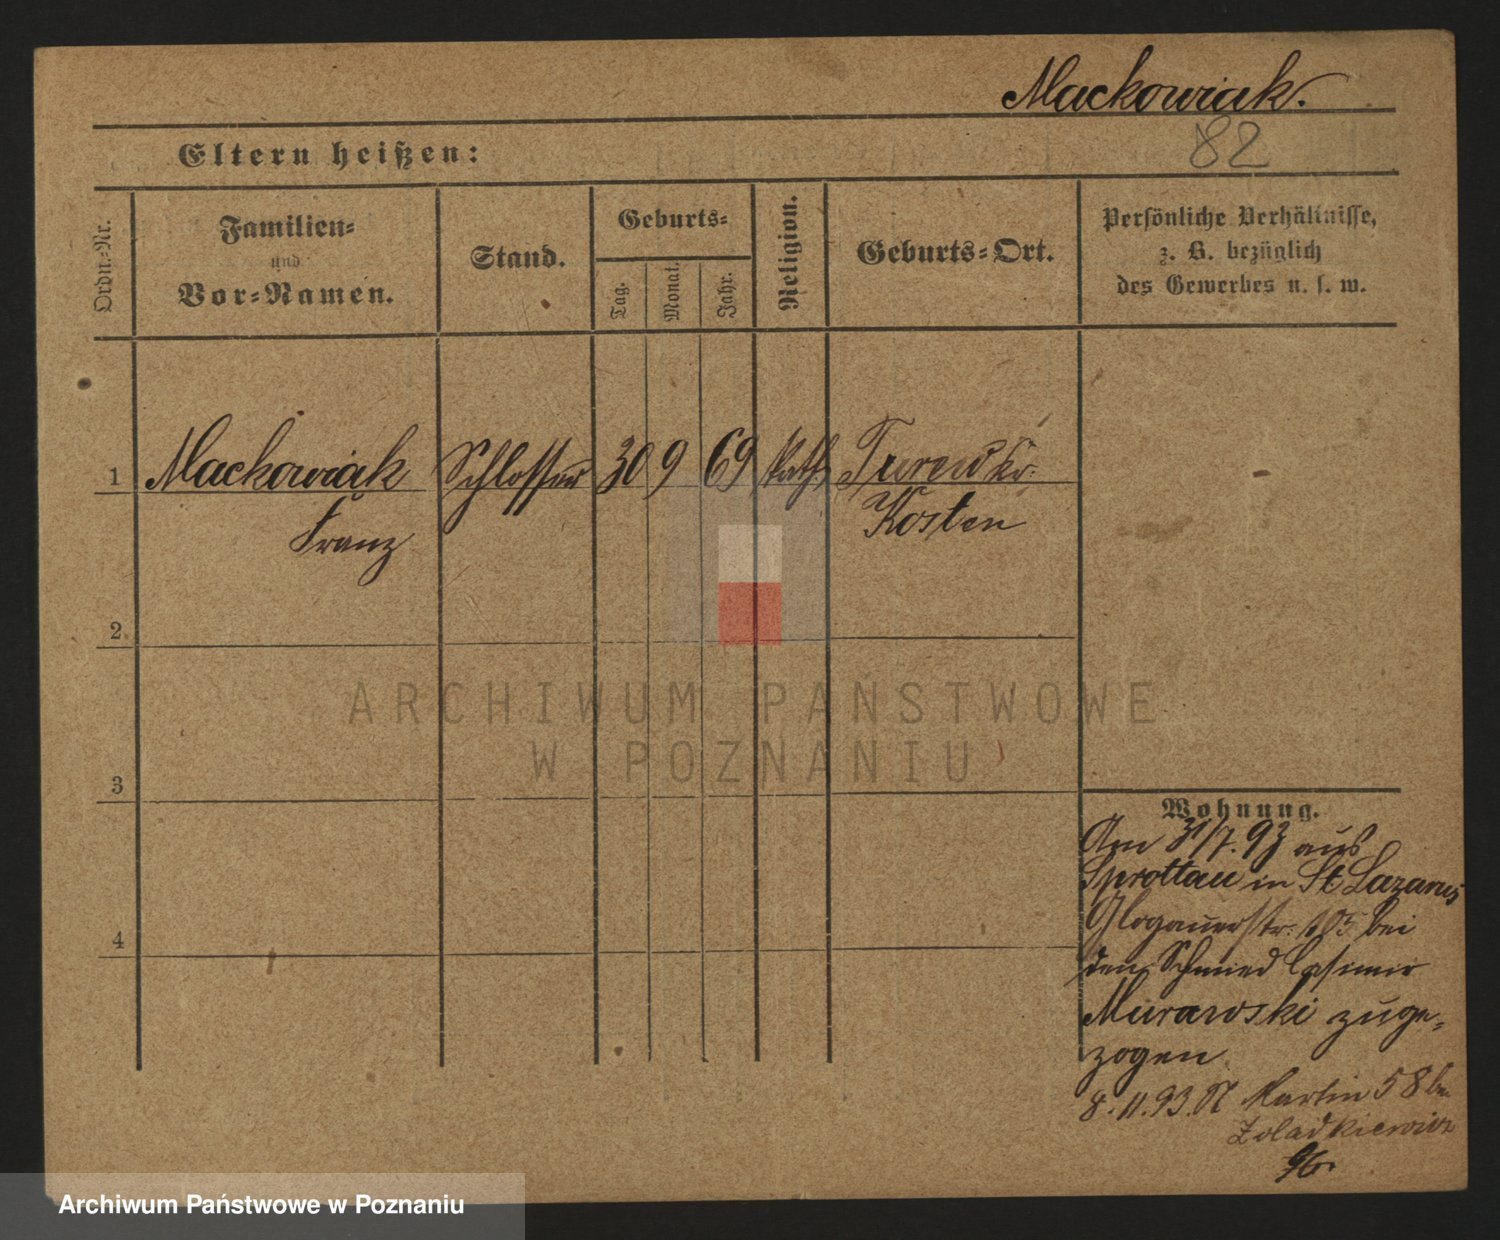 Mackowiak.
82
Eltern heißen:
Ordn.-Nr.
Familien-
und
Vor-Namen.
Stand.
Geburts-
Tag.
Monat.
Jahr.
Religion.
Geburts-Ort.
Persönliche Verhältnisse,
z. B. bezüglich
des Gewerbes u. s. w.
1 Mackowiak Schlosser 30 9 69 kath. Turew Kr.
Franz Kosten
2
3
4
ARCHIWUM PAŃSTWOWE
W POZNANIU
Wohnung.
Am 31/7. 93 aus
Sprottau in St Lazarus
Glogauerstr. 105 bei
den Schmied Casimir
Murawski zuge-
zogen
8. 11. 93. St Martin 58 bei
Zoladkiewicz
96.
Archiwum Państwowe w Poznaniu